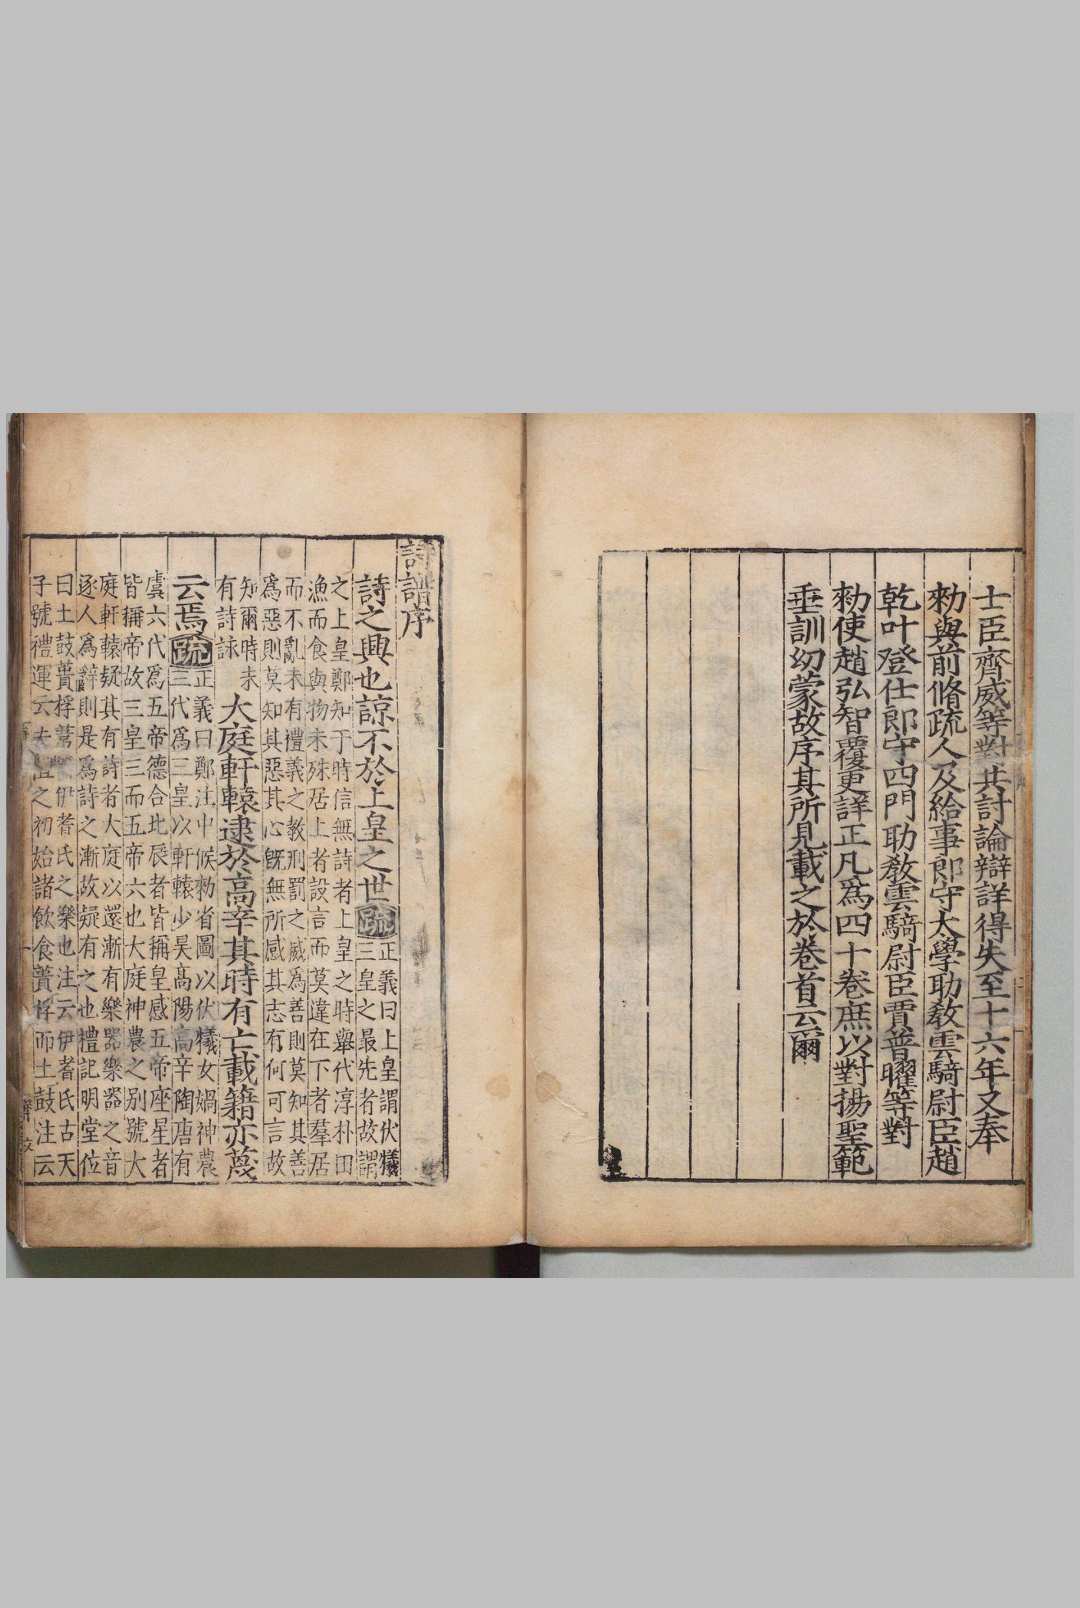 士臣齊威等對共討論辯詳得失至十六年又奉
勑與前脩疏人及給事郎守太學助教雲騎尉臣趙
乾叶登仕郎守四門助教雲騎尉臣賈普曜等對
勑使趙弘智覆更詳正凡爲四十卷庶以對揚聖範
垂訓幼蒙故序其所見載之於卷首云爾
詩譜序
詩之興也諒不於上皇之世疏
正義曰上皇謂伏犧
三皇之最先者故謂
之上皇鄭知于時信無詩者上皇之時舉代淳朴田
漁而食與物未殊居上者設言而莫違在下者羣居
而不亂未有禮義之教刑罰之威爲善則莫知其善
爲惡則莫知其惡其心旣無所感其志有何可言故
知爾時未
有詩詠
大庭軒轅逮於高辛其時有亡載籍亦蔑
云焉疏
正義曰鄭注中候勑省圖以伏犧女媧神農
三代爲三皇以軒轅少昊高陽高辛陶唐有
虞六代爲五帝德合北辰者皆稱皇感五帝座星者
皆稱帝故三皇三而五帝六也大庭神農之別號大
庭軒轅疑其有詩者大庭以還漸有樂器樂器之音
逐人爲辭則是爲詩之漸故疑有之也禮記明堂位
曰土鼓蕢桴葦籥伊耆氏之樂也注云伊耆氏古天
子號禮運云夫禮之初始諸飲食蕢桴而土鼓注云